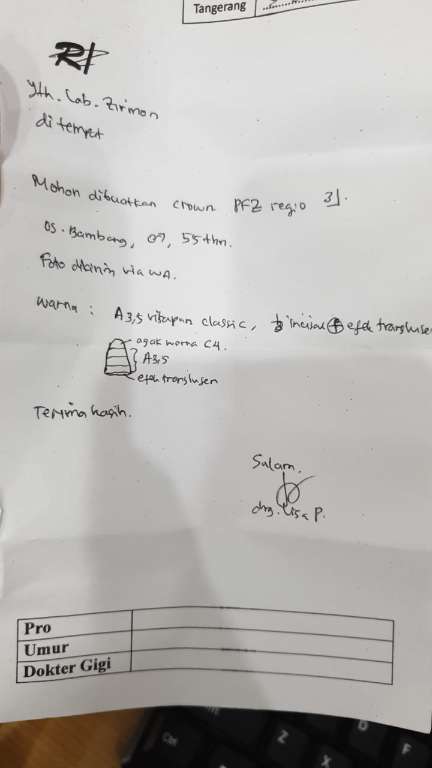 Tangerang
Yth. Lab. Zirmon
di tempat
Mohon dibuatkan crown PFZ regio 3⅃.
OS. Bambang, 55 thn.
Foto dikirim via WA.
Warna : A3,5 vitapan classic, incisal + efek transluse
agak warna C4.
A3,5
efek translusen
Terima kasih.
Salam,
drg. Lisa P.
Pro
Umur
Dokter Gigi
Ctrl
Z
X
D
F